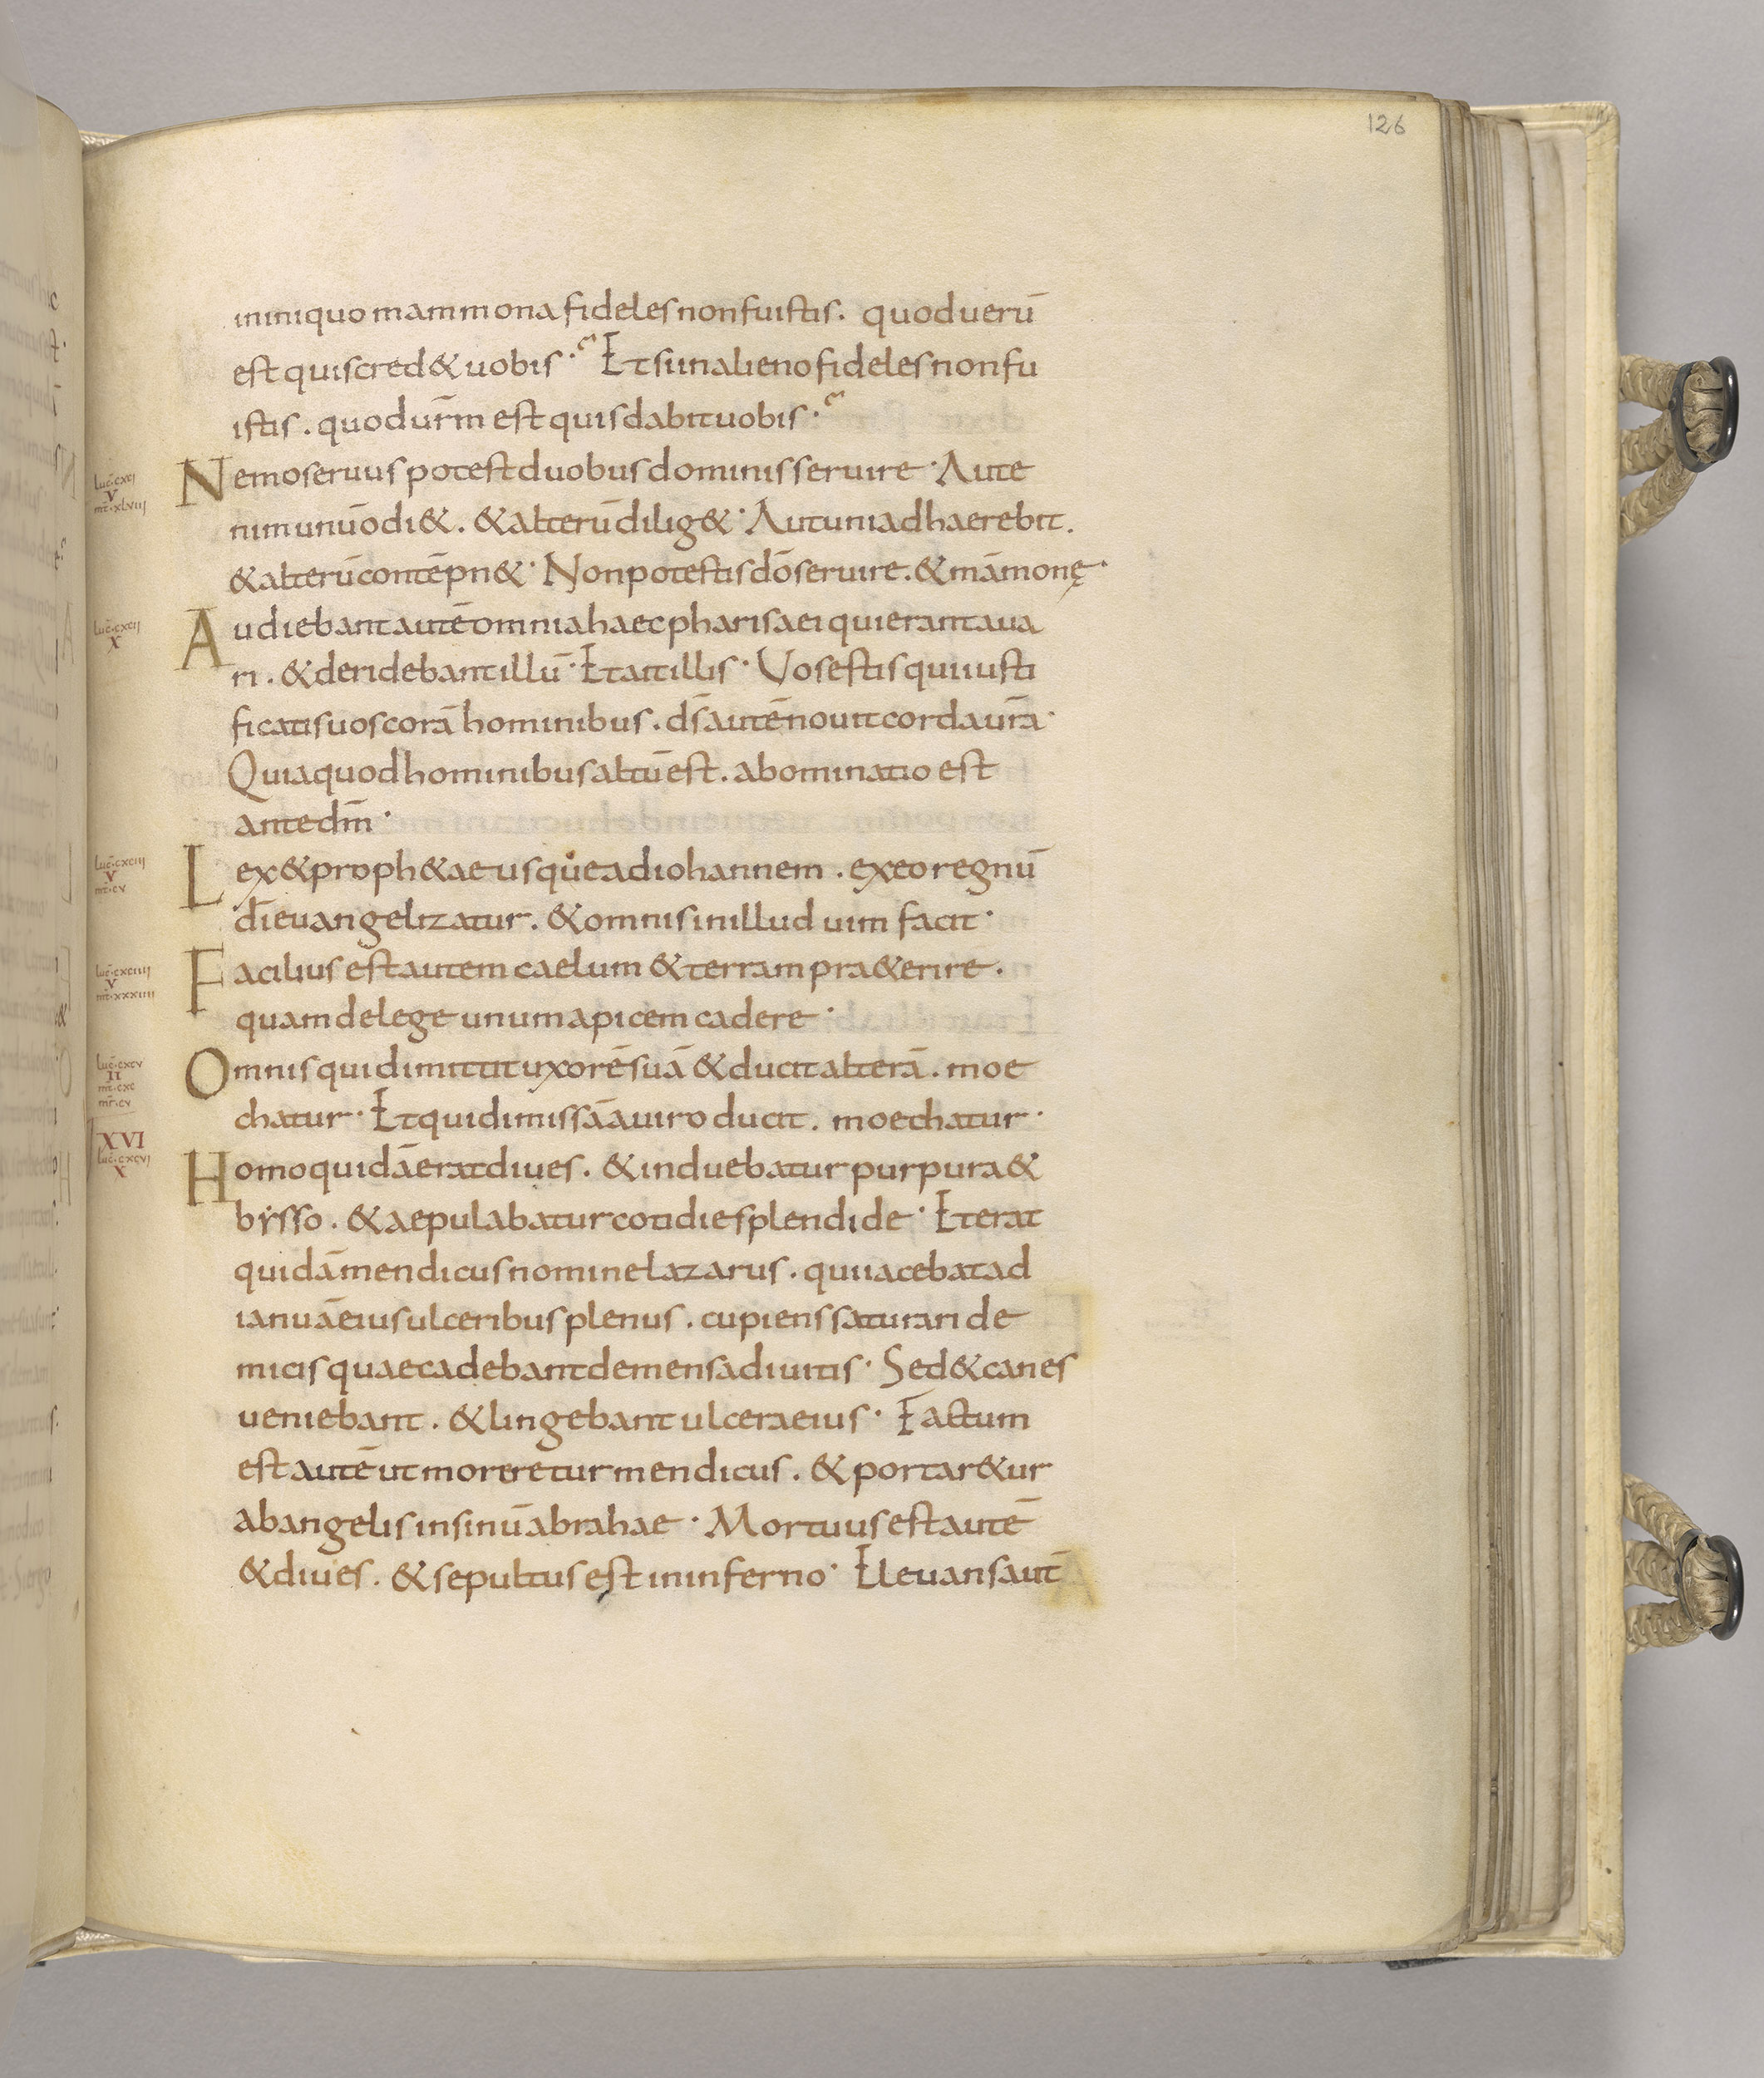 126
ininiquo mammona fideles non fuistis. quod uerū
est quis cred& uobis· Et si in alieno fideles non fu
istis. quod ur̄m est quis dabit uobis·
luc̄·cxci
V
mt̄·xlviii
Nemo seruus potest duobus dominis seruire· Aut e
nim unū odi&. & alterū dilig&· Aut uni adhaerebit.
& alterū contēpn&· Non potestis dō seruire. & māmonę·
luc̄·cxcii
X
Audiebant autē omnia haec pharisaei qui erant aua
ri. & deridebant illū· Et ait illis· Vos estis qui iusti
ficatis uos corā hominibus. ds̄ autē nouit corda ur̄a·
Quia quod hominibus altū est. abominatio est
ante dm̄·
luc̄·cxciii
V
mt̄·cv
Lex & proph&ae usque ad iohannem. ex eo regnū
dī euangelizatur. & omnis in illud uim facit·
luc̄·cxciiii
V
mt̄·xxxiiii
Facilius est autem caelum & terram pra&erire.
quam de lege unum apicem cadere·
luc̄·cxcv
II
mt̄·cxc
mr̄·cv
Omnis qui dimittit uxorē suā & ducit alterā. moe
chatur· Et qui dimissā a uiro ducit. moechatur·
XVI
luc̄·cxcvi
X
Homo quidā erat diues. & induebatur purpura &
bẏsso. & aepulabatur cotidie splendide· Et erat
quidā mendicus nomine lazarus. qui iacebat ad
ianuā eius ulceribus plenus. cupiens saturari de
micis quae cadebant de mensa diuitis· Sed & canes
ueniebant. & lingebant ulcera eius· Factum
est autē ut moreretur mendicus. & portar&ur
ab angelis in sinū abrahae· Mortuus est autē
& diues. & sepultus est in inferno· Eleuans aut̄